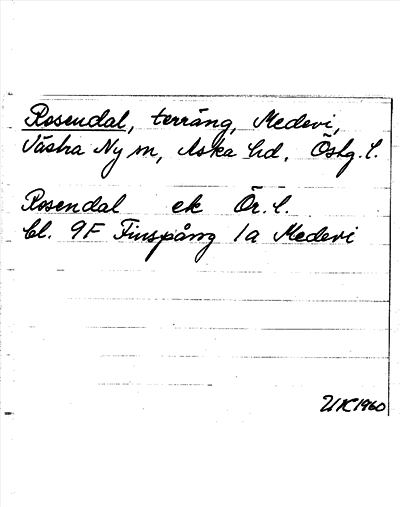 Rosendal, terräng, Medevi,
Västra Ny sn, Aska hd, Östg. l.
Rosendal ek Ör. l.
bl. 9F Finspång 1a Medevi
UK 1960